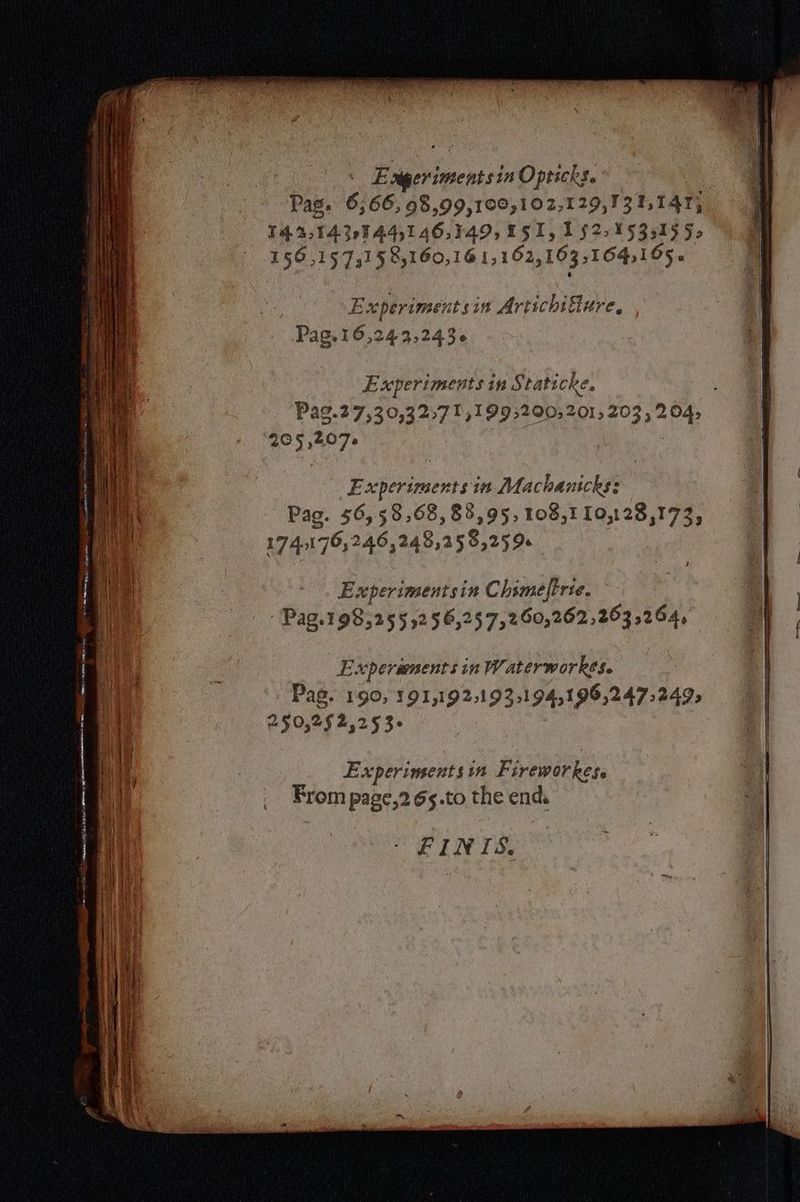 Experiments in Opticks.
Pag. 6,66,98,99,100,102,129,131,141,
142,143,144,146,149,151,152,153,155,
156,157,158,160,161,162,163,164,165.
Experiments in Artichitture,
Pag.16,242,243.
Experiments in Staticke.
Pag.27,30,32,71,199,200,201,203,204,
205,207.
Experiments in Machanicks:
Pag. 56,58,68,88,95,108,110,128,173,
174,176,246,248,258,259.
Experiments in Chimestrie.
Pag.198,255,256,257,260,262,263,264,
Experiments in Waterworkes.
Pag. 190,191,192,193,194,196,247,249,
250,252,253.
Experiments in Fireworkes.
From page,265.to the end.
FINIS.